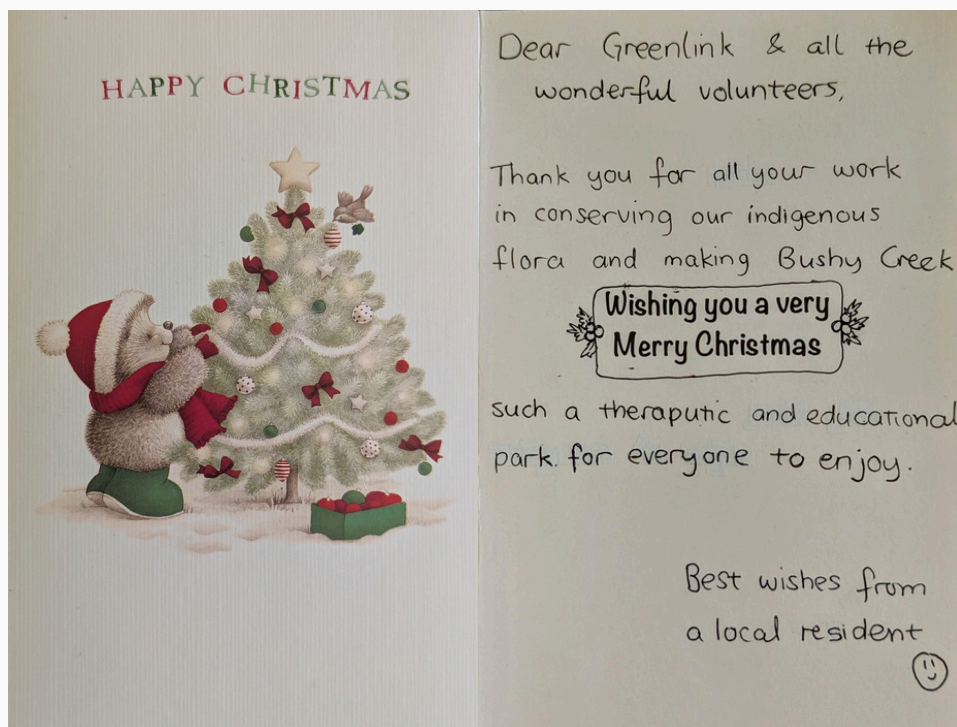 HAPPY CHRISTMAS
Dear Greenlink & all the
wonderful volunteers,
Thank you for all your work
in conserving our indigenous
flora and making Bushy Creek
Wishing you a very
Merry Christmas
such a theraputic and educational
park for everyone to enjoy.
Best wishes from
a local resident